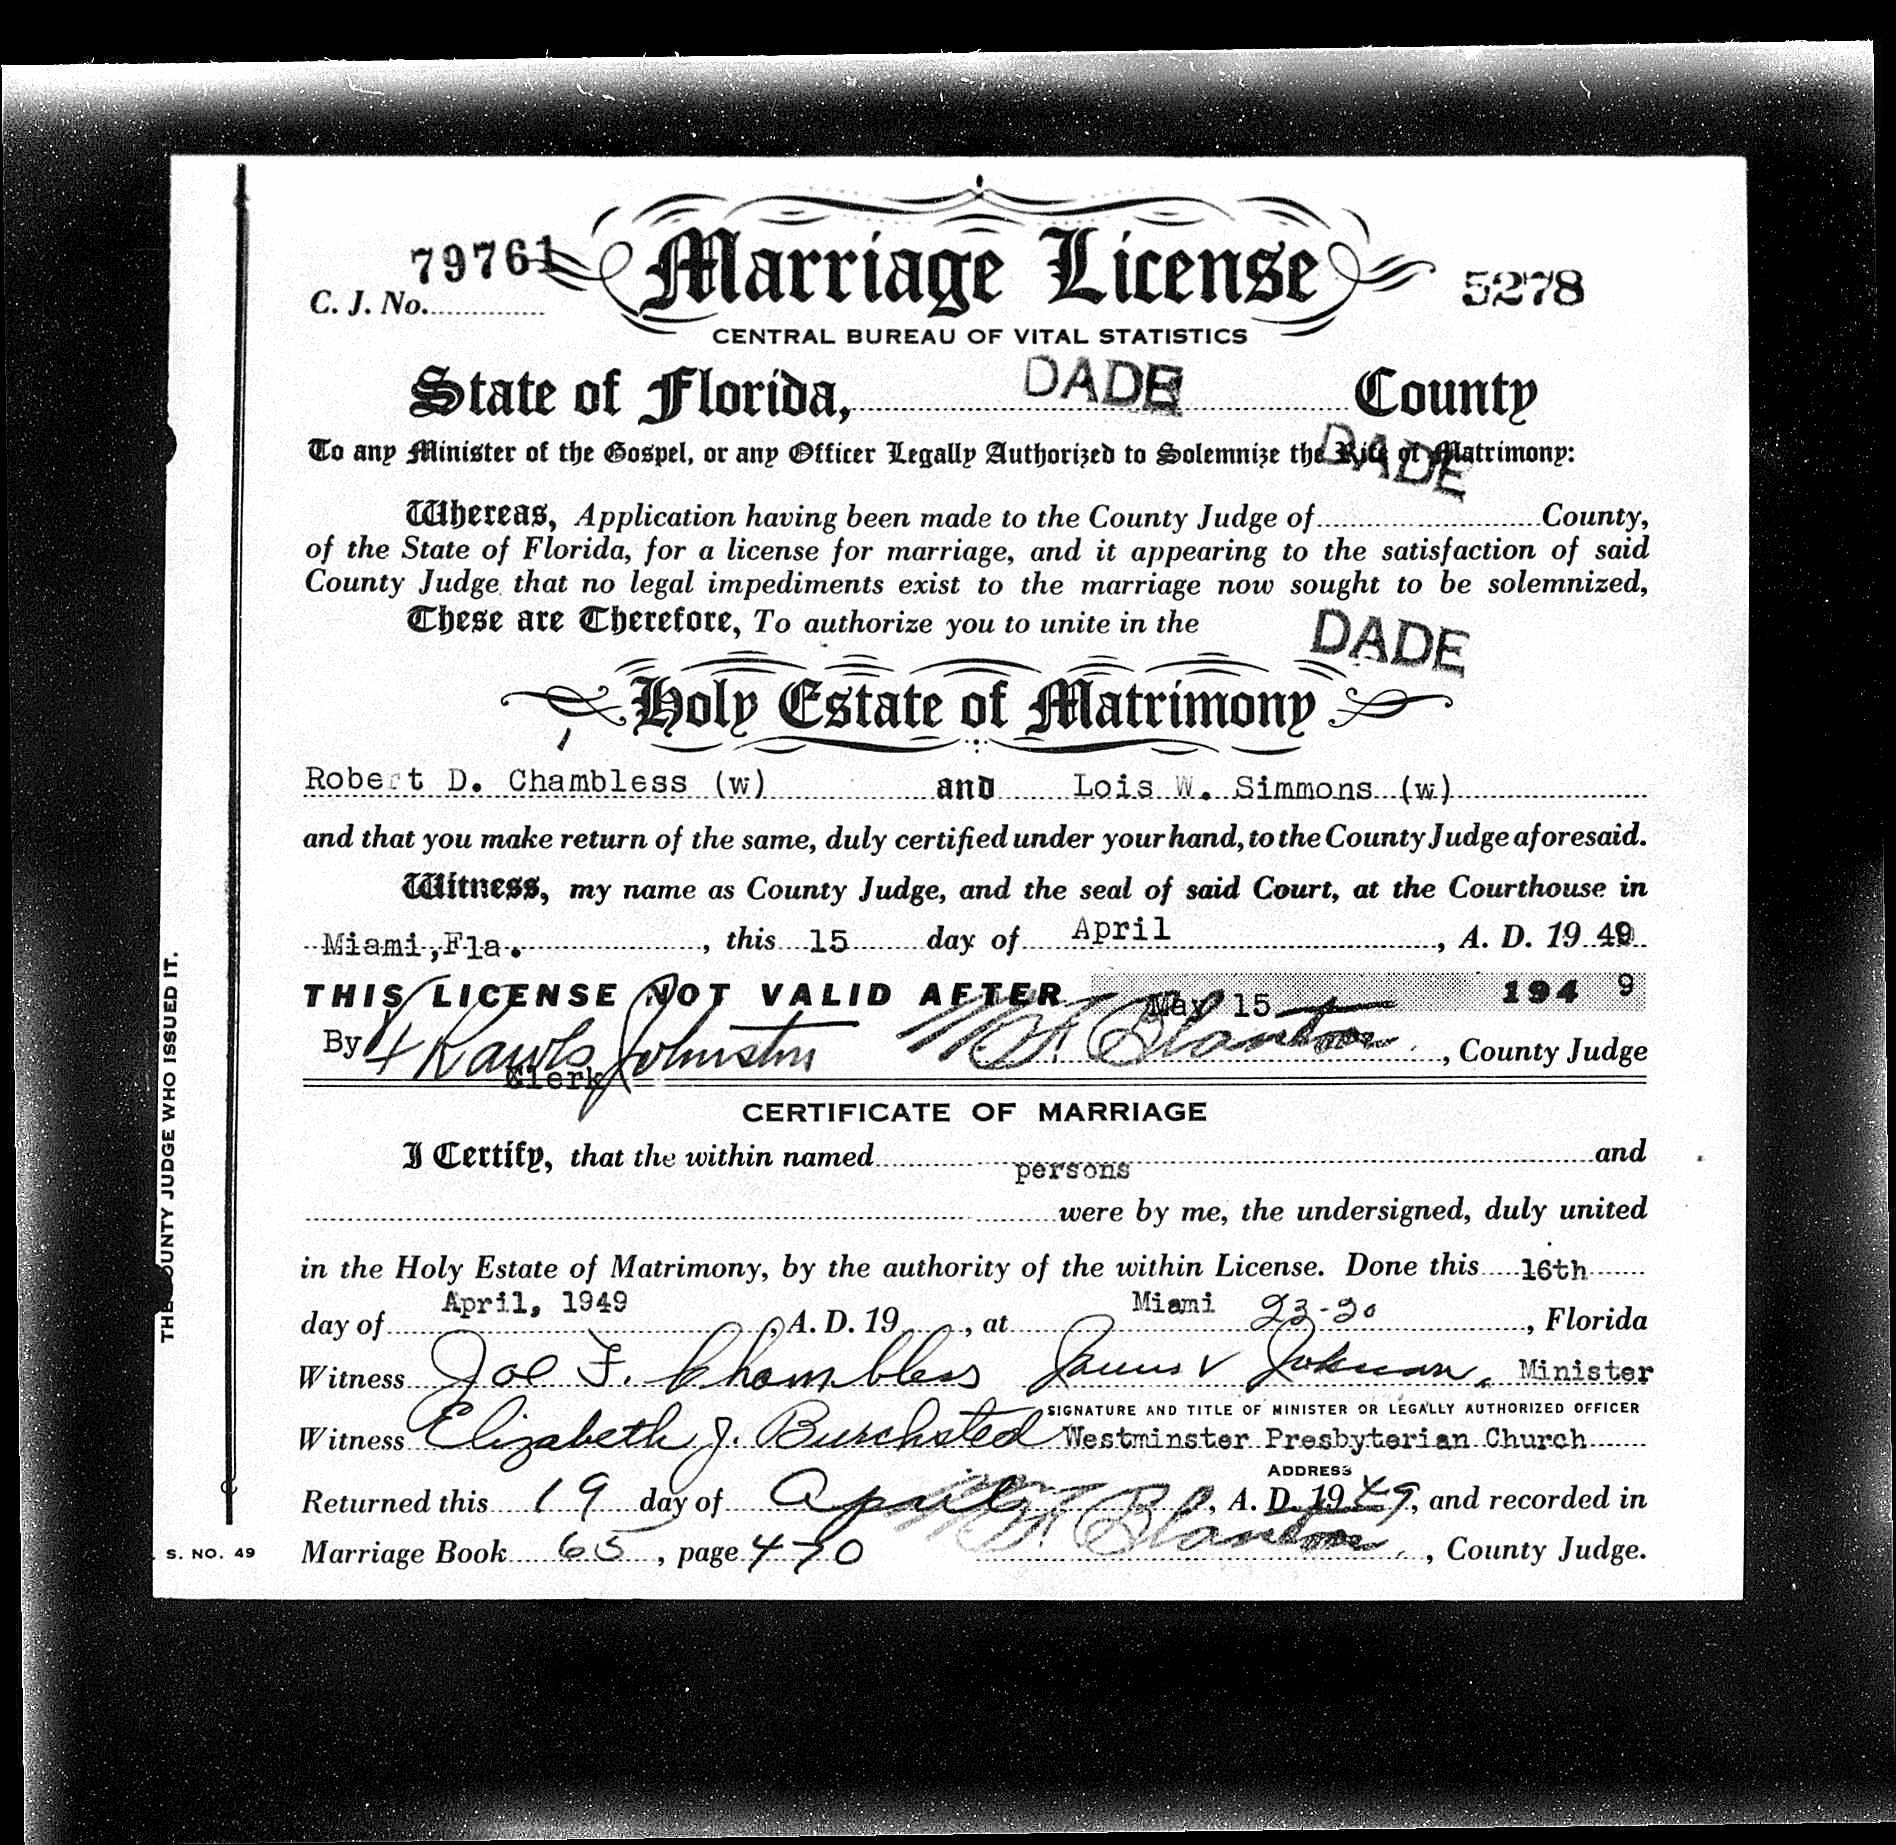 79761
C. J. No.
Marriage License
5278
CENTRAL BUREAU OF VITAL STATISTICS
State of Florida, DADE County
To any Minister of the Gospel, or any Officer Legally Authorized to Solemnize the Rite of Matrimony:
DADE
Whereas, Application having been made to the County Judge of County,
of the State of Florida, for a license for marriage, and it appearing to the satisfaction of said
County Judge that no legal impediments exist to the marriage now sought to be solemnized,
These are Therefore, To authorize you to unite in the
DADE
Holy Estate of Matrimony
Robert D. Chambless (w) and Lois W. Simmons (w)
and that you make return of the same, duly certified under your hand, to the County Judge aforesaid.
Witness, my name as County Judge, and the seal of said Court, at the Courthouse in
Miami,Fla. , this 15 day of April , A. D. 19 49
THIS LICENSE NOT VALID AFTER May 15 194 9
By Rawls Johnston Blanton , County Judge
Clerk
CERTIFICATE OF MARRIAGE
I Certify, that the within named persons and
were by me, the undersigned, duly united
in the Holy Estate of Matrimony, by the authority of the within License. Done this 16th
day of April, 1949 , A. D. 19 , at Miami 23-30 , Florida
Witness Joe F. Chambless James V Johnson, Minister
SIGNATURE AND TITLE OF MINISTER OR LEGALLY AUTHORIZED OFFICER
Witness Elizabeth J. Burchsted Westminster Presbyterian Church
ADDRESS
Returned this 19 day of April , A. D. 19 49, and recorded in
Marriage Book 65 , page 470 Blanton , County Judge.
S. NO. 49
THE COUNTY JUDGE WHO ISSUED IT.